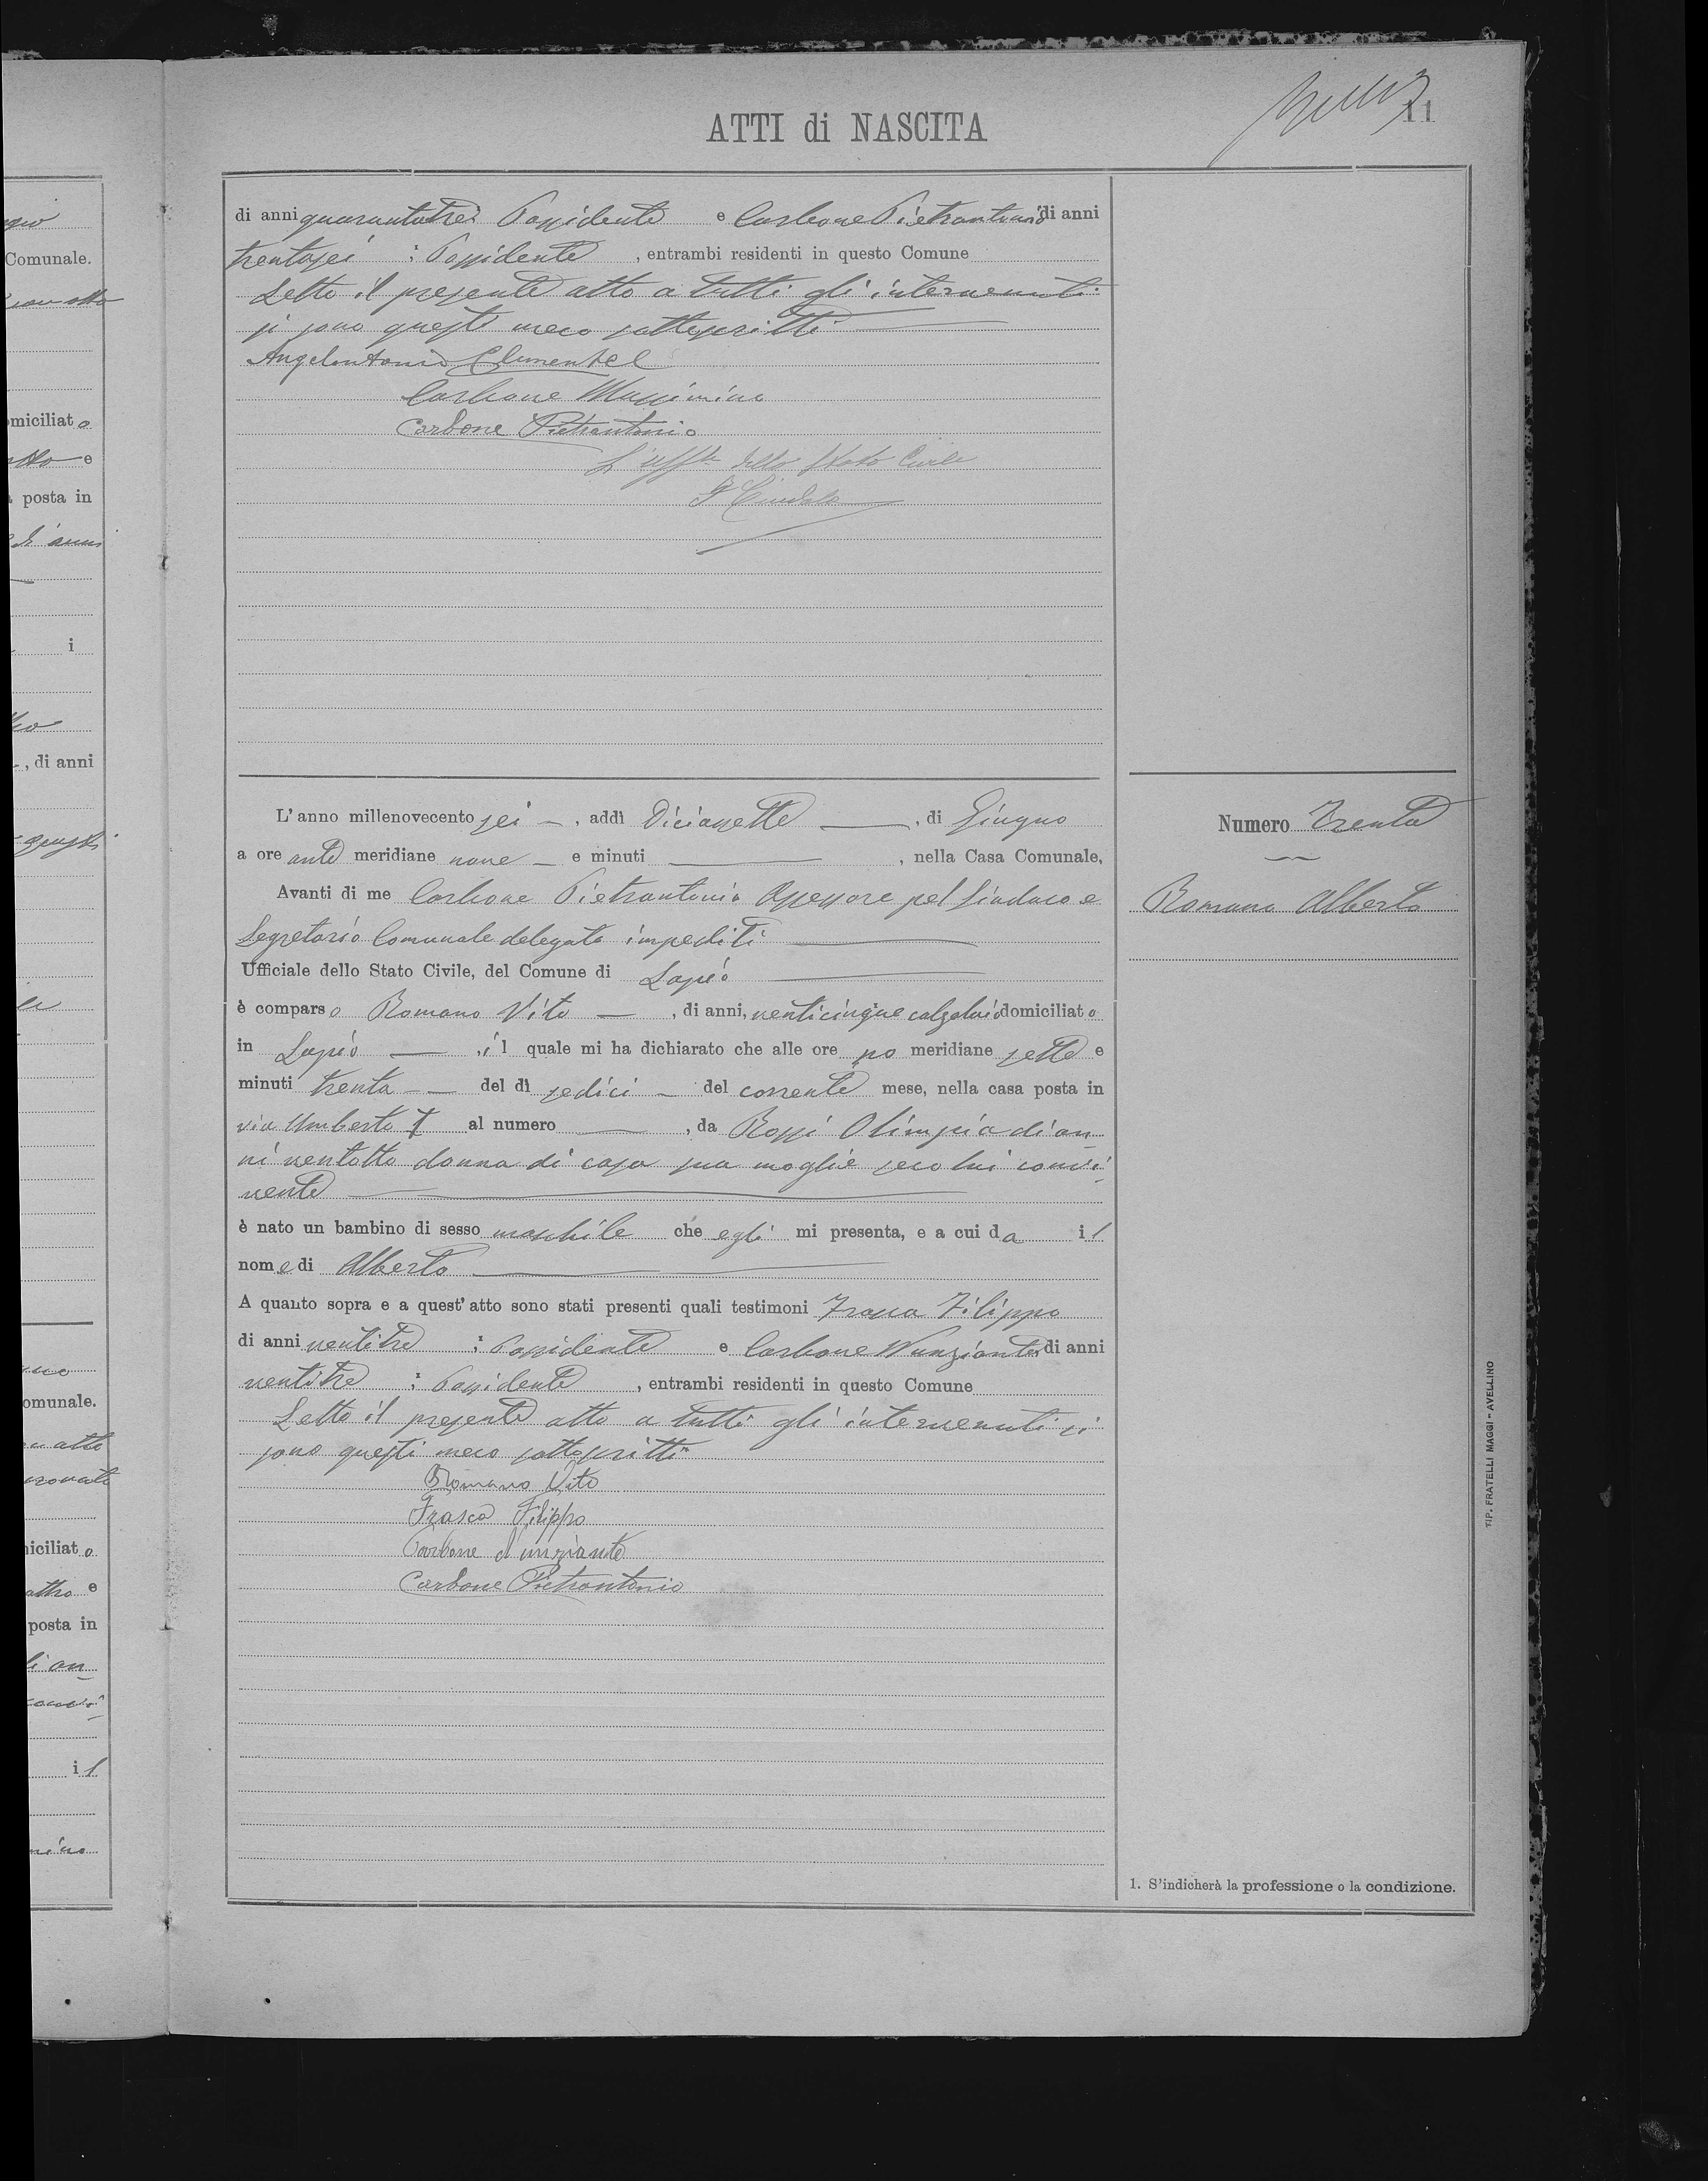 ATTI di NASCITA
11
di anni quarantatre: Possidente e Carbone Pietrantonio di anni
trentasei : Possidente, entrambi residenti in questo Comune
Letto il presente atto a tutti gli intervenuti
si sono questi meco sottoscritti
Angelantonio Clemente
Carbone Massimino
Carbone Pietrantonio
L'Uff.le dello Stato Civile
L'anno millenovecento sei, addì Diciassette, di Giugno
a ore ante meridiane nove e minuti, nella Casa Comunale,
Avanti di me Carbone Pietrantonio Assessore pel Sindaco e
Segretario Comunale delegato impediti
Ufficiale dello Stato Civile, del Comune di Lapio
è comparso Romano Vito, di anni, venticinque calzolaio domiciliato
in Lapio, il quale mi ha dichiarato che alle ore po meridiane sette e
minuti trenta del dì sedici del corrente mese, nella casa posta in
via Umberto I al numero, da Rossi Olimpia di an
ni ventotto donna di casa sua moglie seco lui convi
vente
è nato un bambino di sesso maschile che egli mi presenta, e a cui da il
nome di Alberto
A quanto sopra e a quest'atto sono stati presenti quali testimoni Frasca Filippo
di anni ventitre : Possidente e Carbone Nunziante di anni
ventitre : Possidente, entrambi residenti in questo Comune
Letto il presente atto a tutti gli intervenuti si
sono questi meco sottoscritti
Romano Vito
Frasca Filippo
Carbone Nunziante
Carbone Pietrantonio
Numero Trenta
Romano Alberto
1. S'indicherà la professione o la condizione.
TIP. FRATELLI MAGGI - AVELLINO
Comunale.
miciliato
e
posta in
di anni
i
, di anni
questi
omunale.
iciliato
e
posta in
di an
il